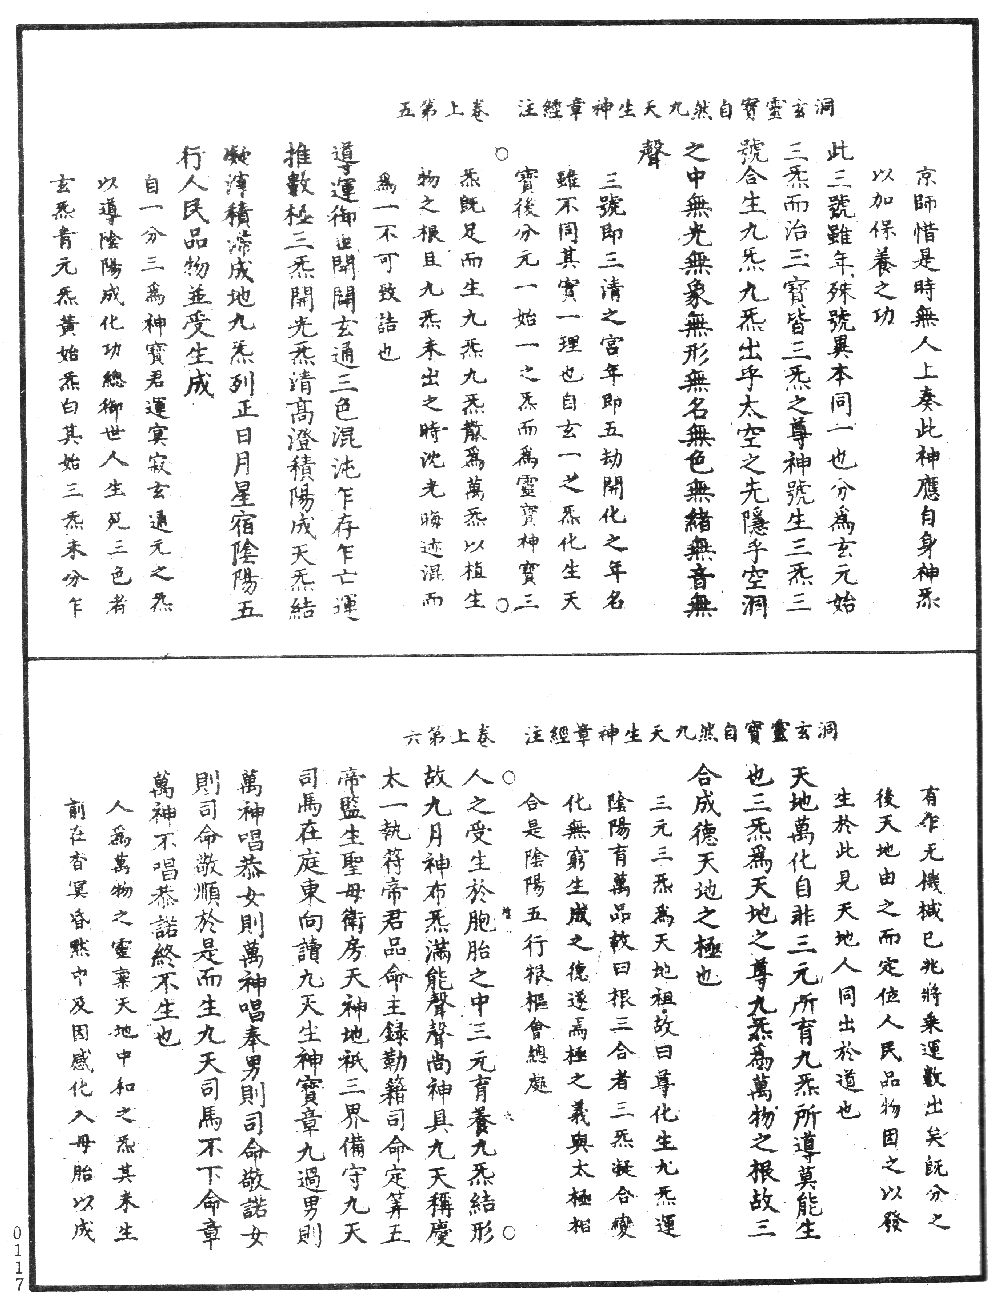 洞玄靈寶自然九天生神章經注　卷上第五
京師惜是時無人上奏此神應自身神炁
以加保養之功
此三號雖年殊號異本同一也分為玄元始
三炁而治三寶皆三炁之尊神號生三炁三
號合生九炁九炁出乎太空之先隱乎空洞
之中無光無象無形無名無色無緒無音無
聲
三號即三清之宮年即五劫開化之年名
雖不同其實一理也自玄一之炁化生天
寶後分元一始一之炁而為靈寶神寶三
炁既足而生九炁九炁散為萬炁以植生
物之根且九炁未出之時沈光晦迹混而
為一不可致詰也
導運御世開闢玄通三色混沌乍存乍亡運
推數極三炁開光炁清高澄積陽成天炁結
凝滓積滯成地九炁列正日月星宿陰陽五
行人民品物並受生成
自一分三為神寶君運冥寂玄通元之炁
以導陰陽成化功總御世人生死三色者
玄炁青元炁黃始炁白其始三炁未分乍
洞玄靈寶自然九天生神章經注　卷上第六
有乍无機緘已兆將乘運數出矣既分之
後天地由之而定位人民品物因之以發
生於此見天地人同出於道也
天地萬化自非三元所育九炁所導莫能生
也三炁為天地之尊九炁為萬物之根故三
合成德天地之極也
三元三炁為天地祖故曰尊化生九炁運
陰陽育萬品故曰根三合者三炁凝合變
化無窮生成之德遂為極之義與太極相
合是陰陽五行根樞會總處
人之受生於胞胎之中三元育養九炁結形
故九月神布炁滿能聲聲尚神具九天稱慶
太一執符帝君品命主錄勒籍司命定筭五
帝監生聖母衛房天神地祇三界備守九天
司馬在庭東向讀九天生神寶章九過男則
萬神唱恭女則萬神唱奉男則司命敬諾女
則司命敬順於是而生九天司馬不下命章
萬神不唱恭諾終不生也
人為萬物之靈稟天地中和之炁其未生
前在杳冥昏默中及因感化入母胎以成
0117